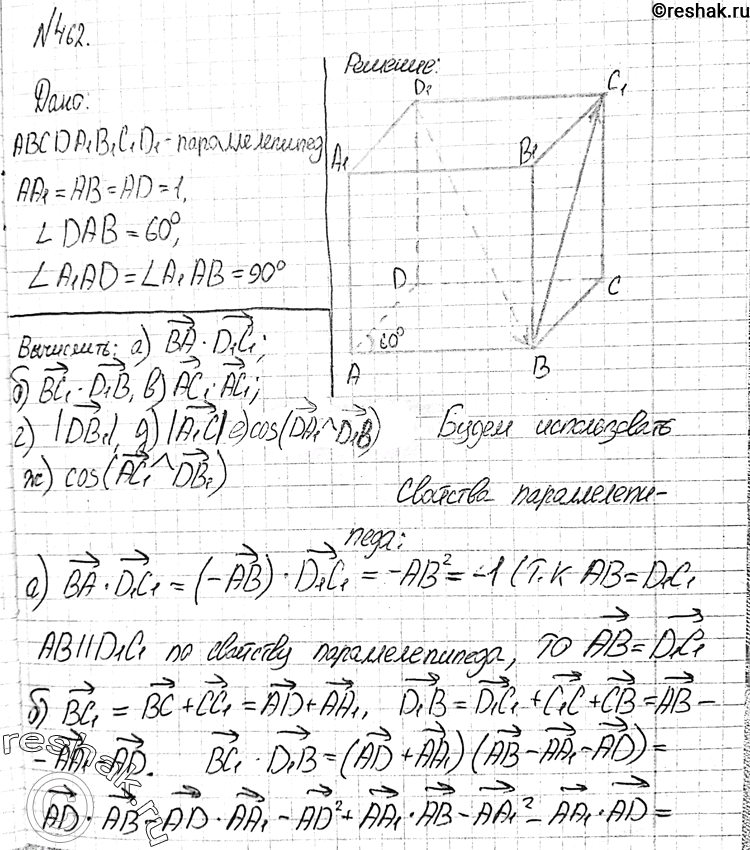 ©reshak.ru
№462.
Дано:
ABCDA₁B₁C₁D₁ - параллелепипед
AA₁ = AB = AD = 1,
∠DAB = 60°,
∠A₁AD = ∠A₁AB = 90°
Решение:
D₁
C₁
A₁
B₁
D
C
60°
A
B
Вычислить: а) BA⃗ · D₁C₁⃗;
б) BC₁⃗ · D₁B⃗, в) AC₁⃗ · AC₁⃗;
г) |DB₁⃗|, д) |A₁C⃗| е) cos(DA₁⃗ ^ D₁B⃗)
ж) cos(AC₁⃗ ^ DB₁⃗)
Будем использовать
свойства параллелепи-
педа:
а) BA⃗ · D₁C₁⃗ = (-AB⃗) · D₁C₁⃗ = -AB² = -1 (т.к AB = D₁C₁
AB || D₁C₁ по свойству параллелепипеда, то AB⃗ = D₁C₁⃗
б) BC₁⃗ = BC⃗ + CC₁⃗ = AD⃗ + AA₁⃗, D₁B⃗ = D₁C₁⃗ + C₁C⃗ + CB⃗ = AB⃗ -
- AA₁⃗ - AD⃗. BC₁⃗ · D₁B⃗ = (AD⃗ + AA₁⃗) (AB⃗ - AA₁⃗ - AD⃗) =
AD⃗ · AB⃗ - AD⃗ · AA₁⃗ - AD⃗² + AA₁⃗ · AB⃗ - AA₁⃗² - AA₁⃗ · AD⃗ =
reshak.ru